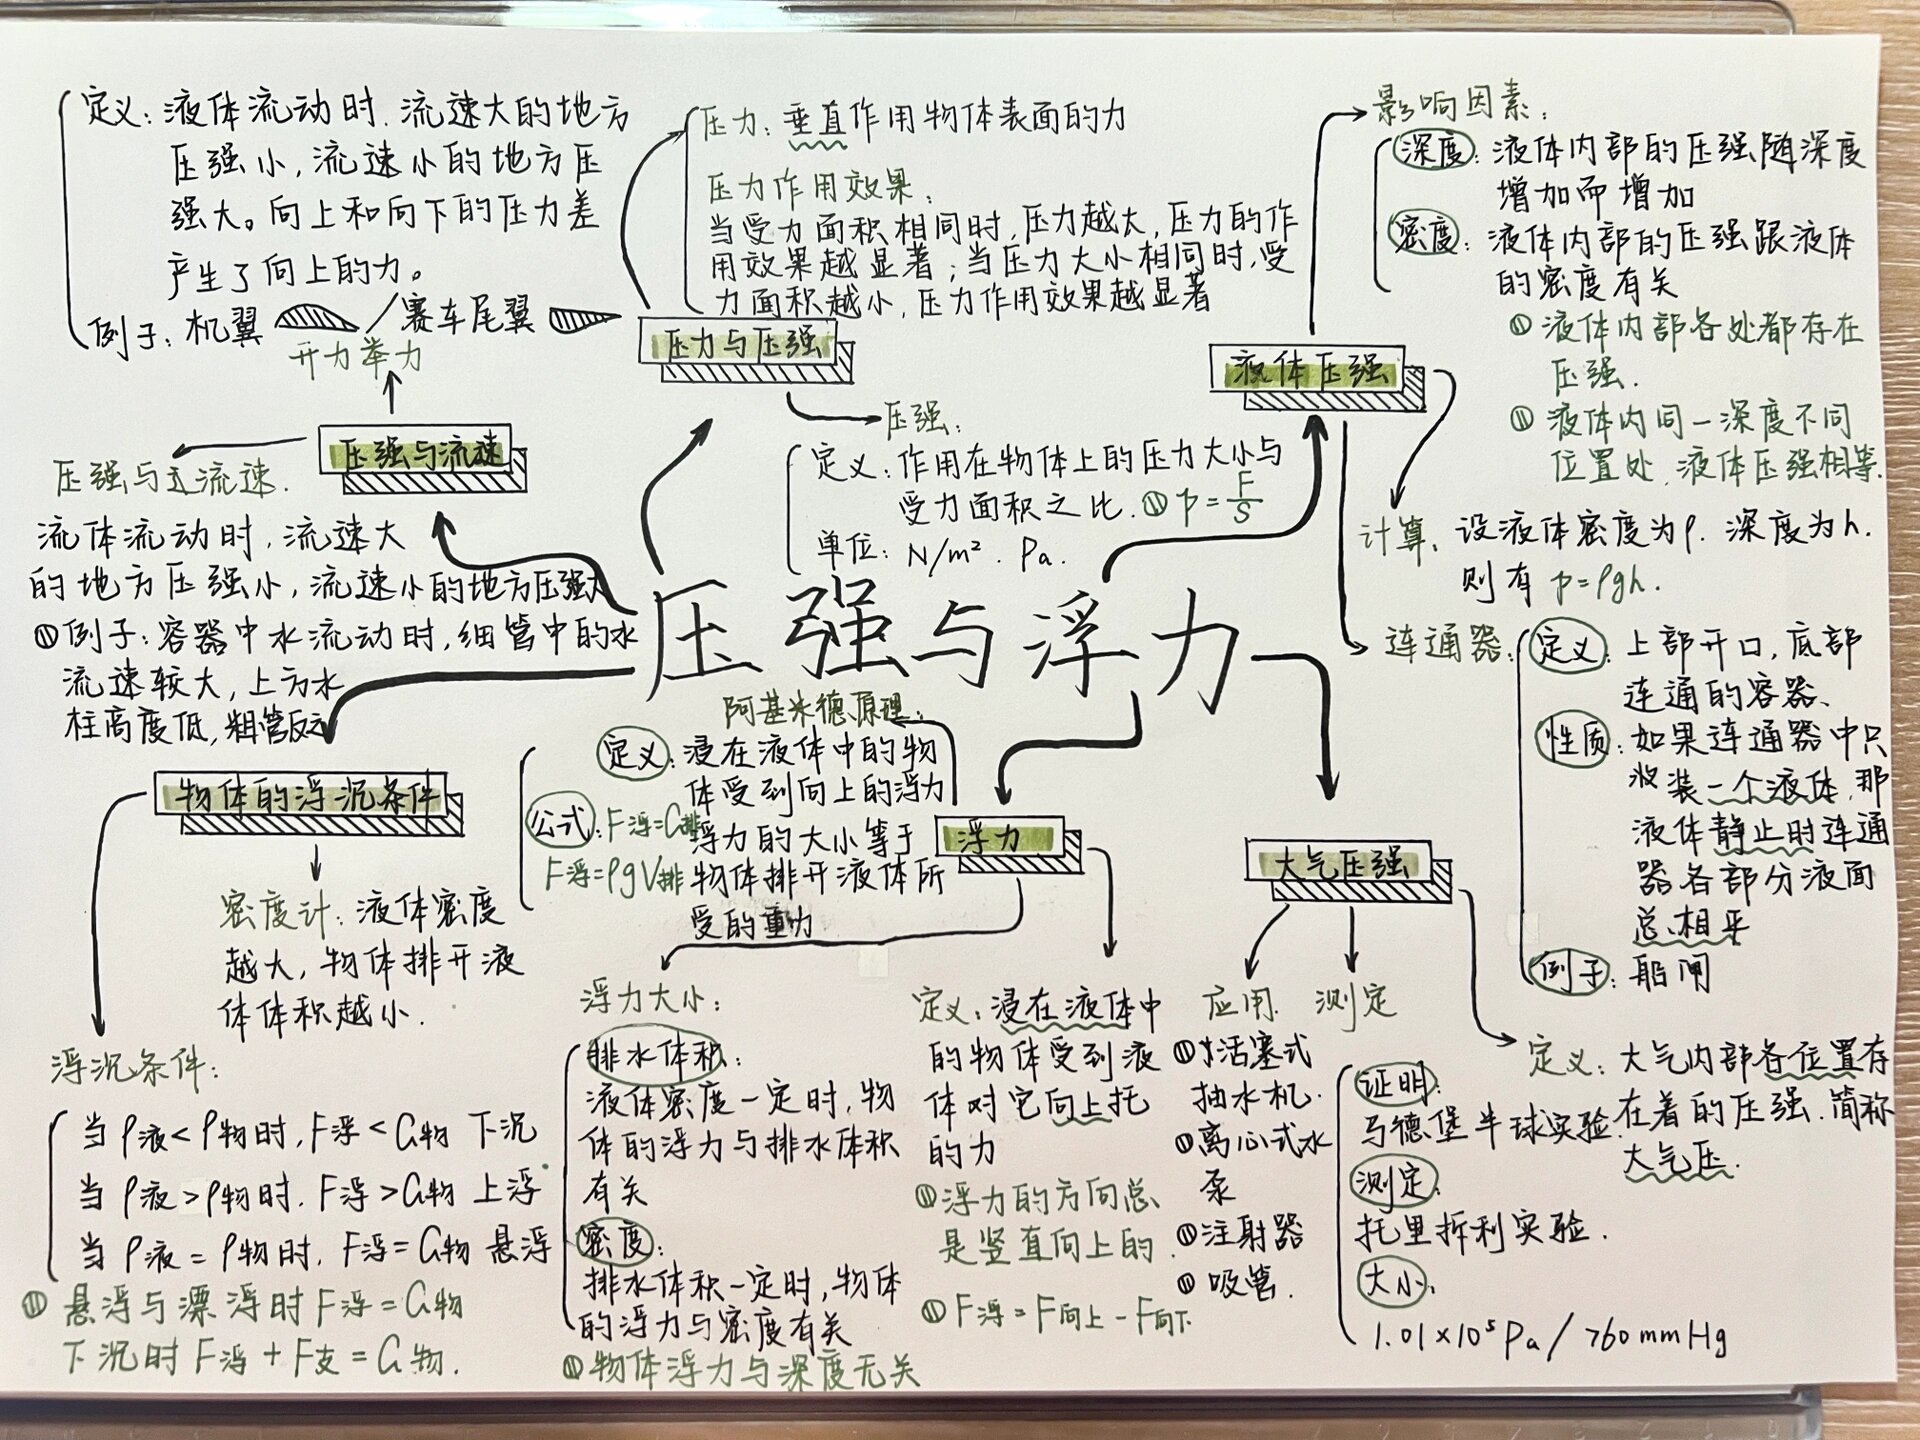 定义：液体流动时.流速大的地方
压强小，流速小的地方压
强大。向上和向下的压力差
产生了向上的力。
例子：机翼 /赛车尾翼
升力举力
压强与流速
压强与流速.
流体流动时，流速大
的地方压强小，流速小的地方压强大
例子：容器中水流动时，细管中的水
流速较大，上方水
柱高度低，粗管反之
压力：垂直作用物体表面的力
压力作用效果：
当受力面积相同时，压力越大，压力的作
用效果越显著；当压力大小相同时，受
力面积越小，压力作用效果越显著
压力与压强
压强：
定义：作用在物体上的压力大小与
受力面积之比. p=F/S
单位：N/m². Pa.
影响因素：
深度：液体内部的压强随深度
增加而增加
密度：液体内部的压强跟液体
的密度有关
液体内部各处都存在
压强.
液体内同一深度不同
位置处,液体压强相等.
液体压强
计算：设液体密度为ρ.深度为h.
则有 p=ρgh.
连通器：
定义：上部开口，底部
连通的容器、
性质：如果连通器中只
装一个液体,那
液体静止时连通
器各部分液面
总相平
例子：船闸
压强与浮力
物体的浮沉条件
密度计：液体密度
越大，物体排开液
体体积越小.
浮沉条件：
当ρ液<ρ物时，F浮<G物 下沉
当ρ液>ρ物时.F浮>G物 上浮
当ρ液=ρ物时.F浮=G物 悬浮
悬浮与漂浮时F浮=G物
下沉时F浮+F支=G物.
阿基米德原理：
定义：浸在液体中的物
体受到向上的浮力
浮力的大小等于
物体排开液体所
受的重力
公式：F浮=G排
F浮=ρgV排
浮力
浮力大小：
排水体积：
液体密度一定时，物
体的浮力与排水体积
有关
密度：
排水体积一定时，物体
的浮力与密度有关
物体浮力与深度无关
定义：浸在液体中
的物体受到液
体对它向上托
的力
浮力的方向总
是竖直向上的.
F浮=F向上-F向下.
大气压强
应用.
活塞式
抽水机.
离心式水
泵
注射器
吸管.
测定
证明：
马德堡半球实验.
测定：
托里拆利实验.
大小：
1.01×10⁵Pa/760mmHg
定义：大气内部各位置存
在着的压强.简称
大气压.